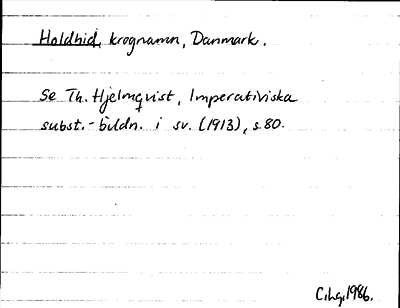 Holdhid, krognamn, Danmark.
Se Th. Hjelmqvist, Imperativiska
subst.-bildn. i sv. (1913), s. 80.
C.hg. 1986.